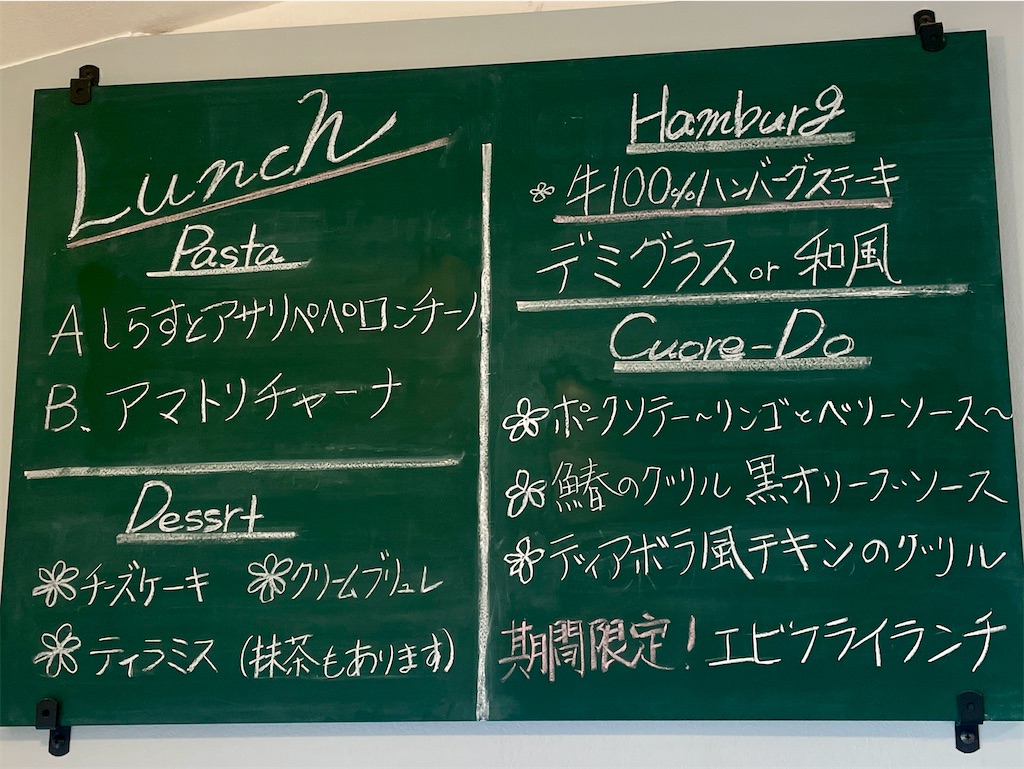 Lunch
Pasta
A しらすとアサリペペロンチーノ
B、アマトリチャーナ
Dessrt
チーズケーキ クリームブリュレ
ティラミス (抹茶もあります)
Hamburg
牛100%ハンバーグステーキ
デミグラス or 和風
Cuore-Do
ポークソテー〜リンゴとベリーソース〜
鰆のグリル 黒オリーブソース
ディアボラ風チキンのグリル
期間限定! エビフライランチ